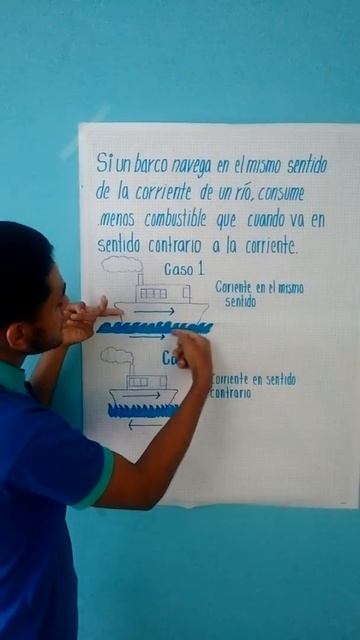 Si un barco navega en el mismo sentido
de la corriente de un río, consume
menos combustible que cuando va en
sentido contrario a la corriente.
Caso 1
Coriente en el mismo
sentido
Ca
corriente en sentido
contrario